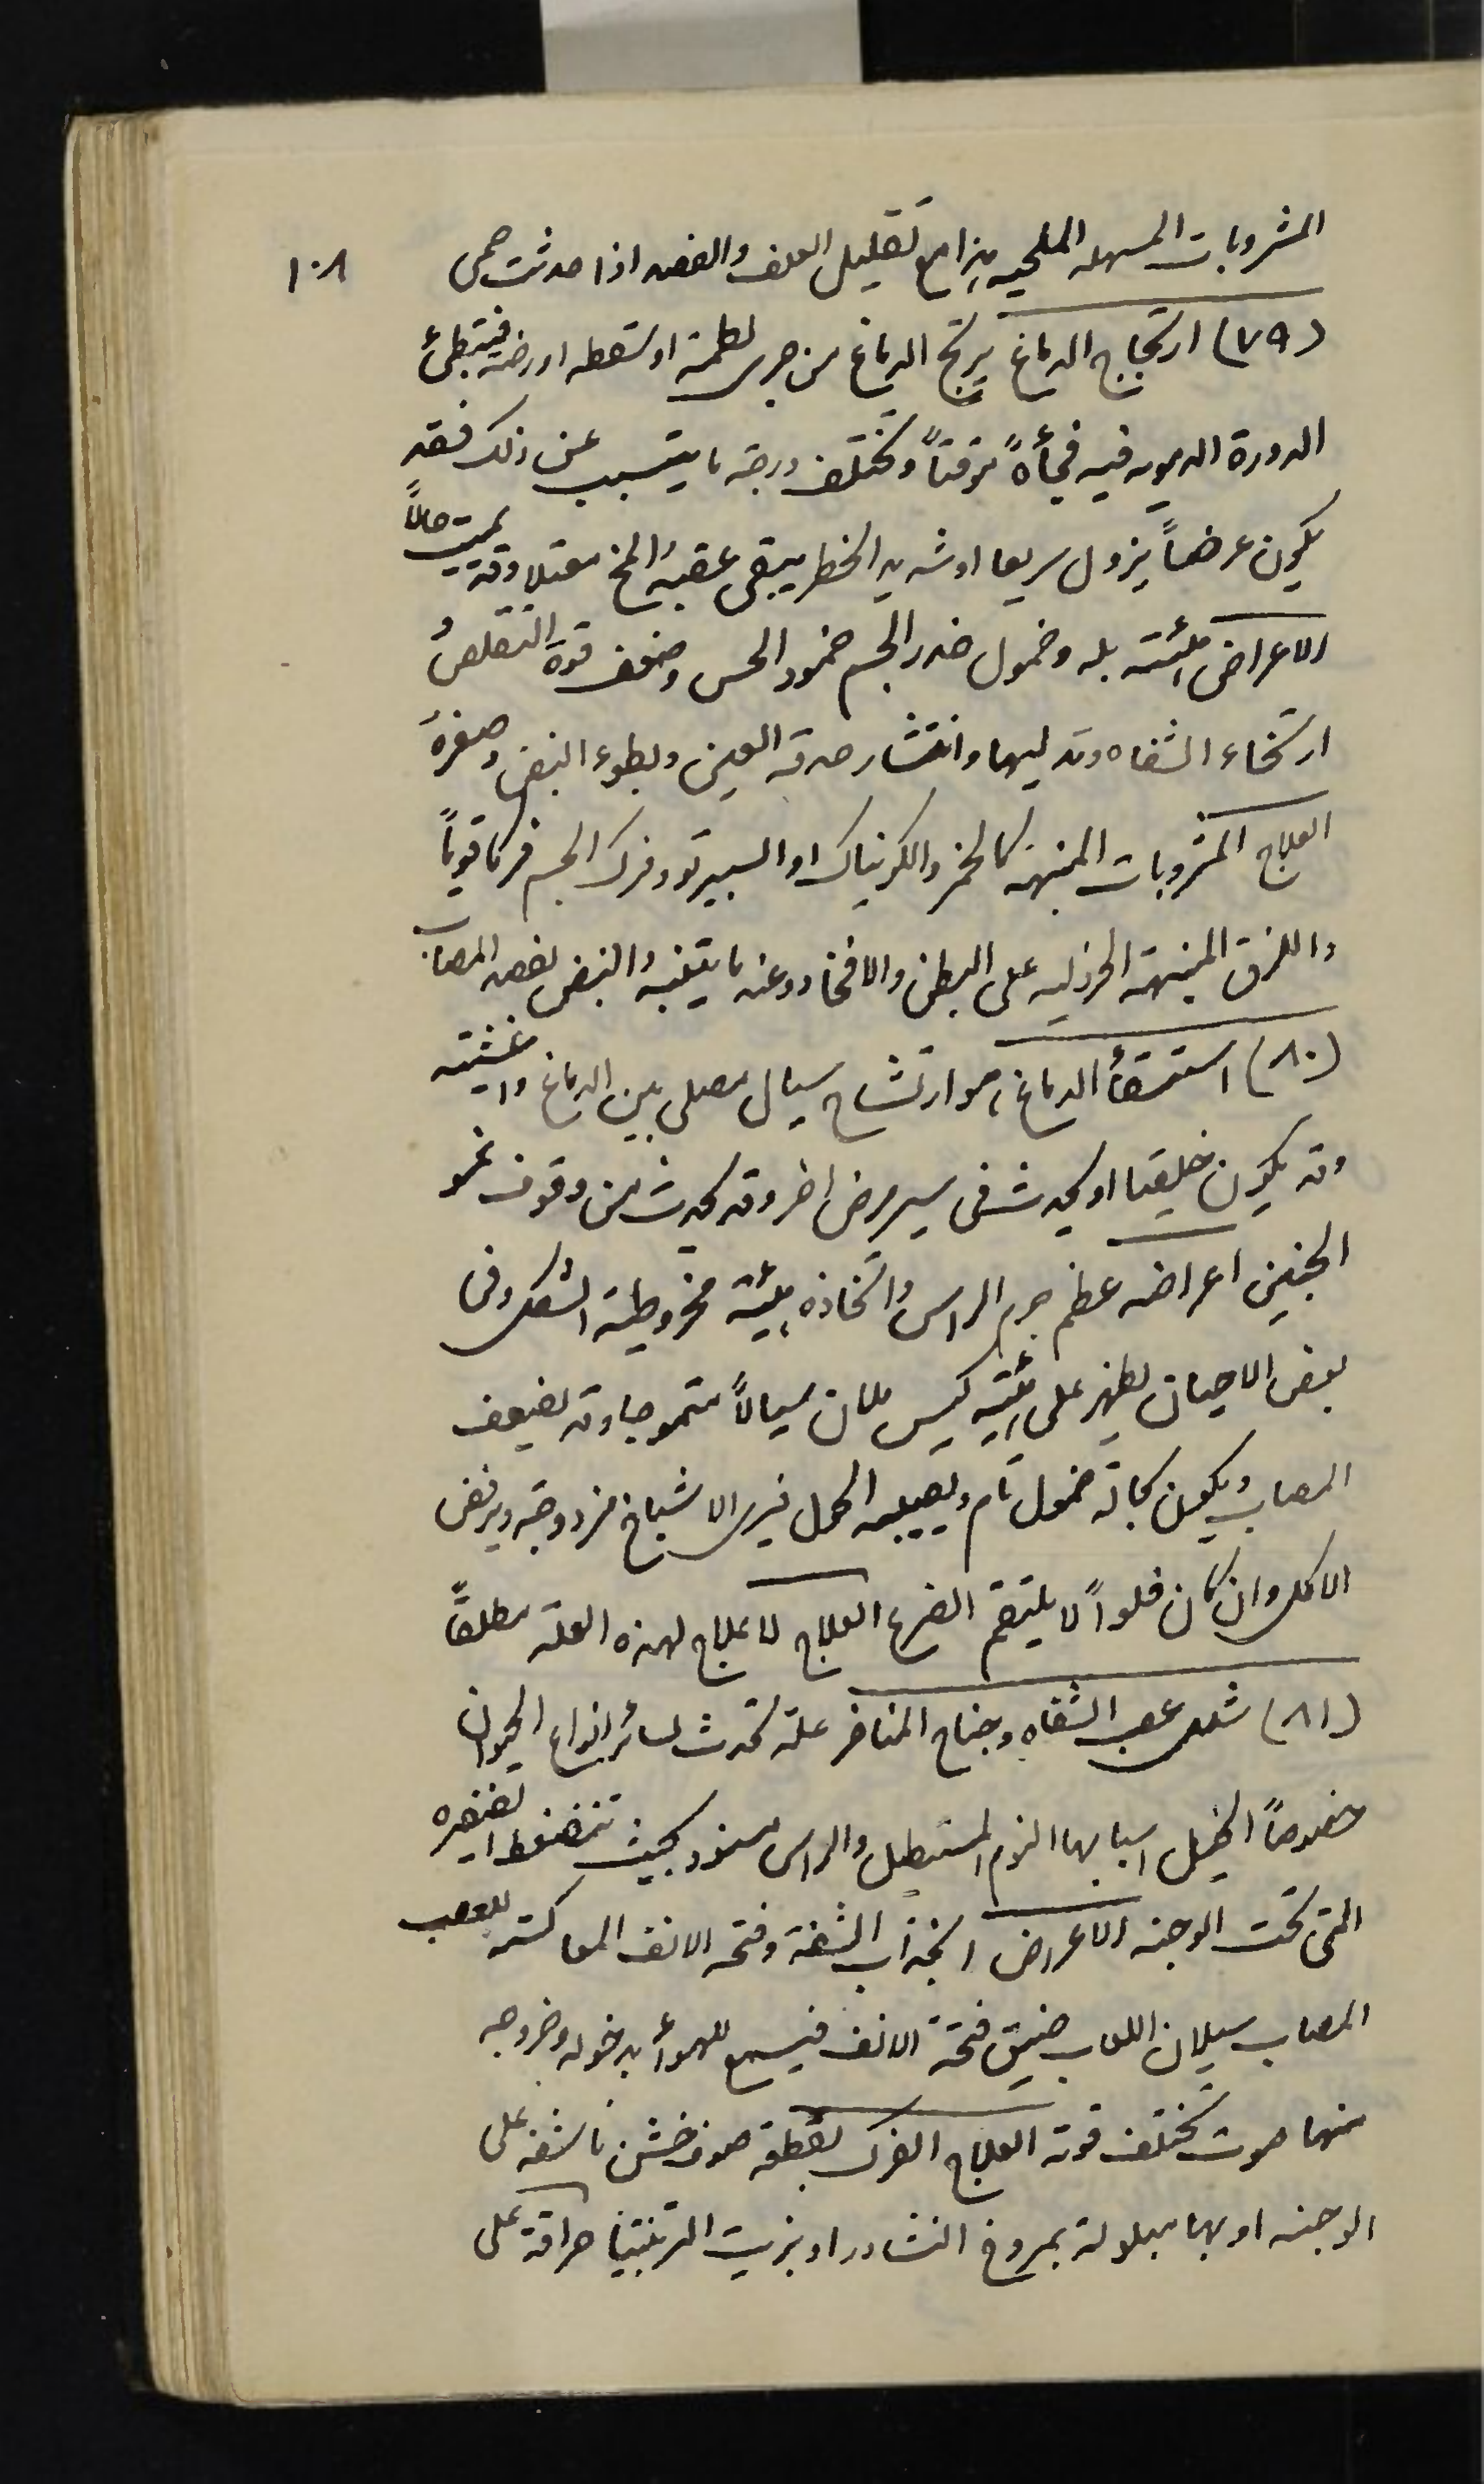 ١٠٨
المشروبات المسهله الملحيه هذا مع تقليل العلف والفصد اذا حدثت حمى
(٧٩) ارتجاج الدماغ يرتج الدماغ من جرى لطمة او سقطه او رضه فتبطئ
الدورة الدمويه فيه فجأةً موقتاً وتختلف درجة ما يتسبب عن ذلك فقد
يكون عرضاً يزول سريعا او شديد الخطر يبقى عقبه المخ معتلا وقد يميت حالاً
الاعراض هيئته بله وخمول خدر الجسم خمود الحس وضعف قوة التقلص
ارتخاء الشفاه وتدليها وانتشار حدقة العين وبطوء النبض وصغره
العلاج المشروبات المنبهه كالخمر والكونياك او السبيرتو وفرك الجسم فركا قوياً
واللزق المنبهة الخردليه على البطن والافخاد وعند ما يتنبه النبض يفصد المصاب
(٨٠) استسقأ الدماغ، هو ارتشاح سيال مصلي بين الدماغ واغشيته
وقد يكون خلقيا او يحدث في سير مرض اخر وقد يحدث من وقوف نمو
الجنين اعراضه عظم جرم الراس واتخاذه هيئة مخروطية الشكل وفى
بعض الاحيان يظهر على هيئة كيس ملان سيالاً متموجا وقد يضعف
المصاب ويكون بحالة خمول تام ويصيبه الحول فيرى الاشباح مزدوجة ويرفض
الاكل وان كان فلواً لا يلتقم الضرع العلاج لا علاج لهذه العله مطلقاً
(٨١) شلل عصب الشفاه وجناح المناخر علة تحدث لسائر انواع الحيوان
خصوصاً الخيل اسبابها النوم المستطيل والراس مسنود بحيث تنضغط الضفيره
التى تحت الوجنه الاعراض انجذاب الشفة وفتحة الانف المعاكسة للعصب
المصاب سيلان اللعاب ضيق فتحة الانف فيسمع للهوأ بدخوله وخروجه
منها صوت تختلف قوته العلاج الفرك بقطعة صوف خشن ناشفه على
الوجنه او بها مبلولة بمروخ النشادر او بزيت التربنتينا حراقة على